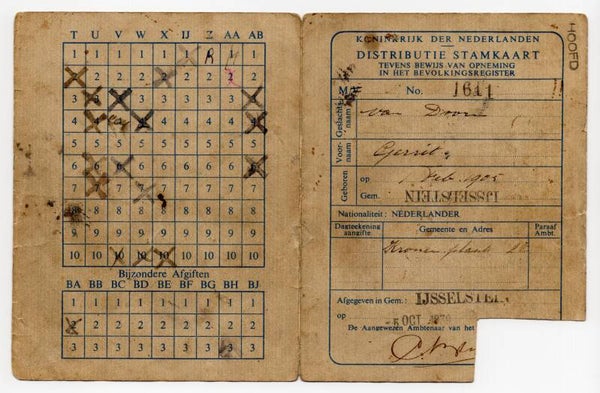 T U V W X IJ Z AA AB
1 1 1 1 1 1 1 1
2 2 2 2 2 2 2
3 3 3 3 3 3 3
4 4 4 4 4 4
5 5 5 5 5 5 5 5 5
6 6 6 6 6 6 6 6
7 7 7 7 7 7 7 7
8 8 8 8 8 8 8 8
9 9 9 9 9 9 9 9 9
10 10 10 10 10 10 10 10 10
Bijzondere Afgiften
BA BB BC BD BE BF BG BH BJ
1 1 1 1 1 1 1 1 1
2 2 2 2 2 2 2 2 2
3 3 3 3 3 3 3 3 3
HOOFD
KONINKRIJK DER NEDERLANDEN
DISTRIBUTIE STAMKAART
TEVENS BEWIJS VAN OPNEMING
IN HET BEVOLKINGSREGISTER
No. 1611
Geslachtsnaam van Doorn
Voornaam Gerrit
Geboren op 1 Feb. 1905
Gem. IJSSELSTEIN
Nationaliteit: NEDERLANDER
Dagteekening aangifte Gemeente en Adres Paraaf Ambt.
Afgegeven in Gem.: IJSSELSTEIN
op -5 OCT
De Aangewezen Ambtenaar van het